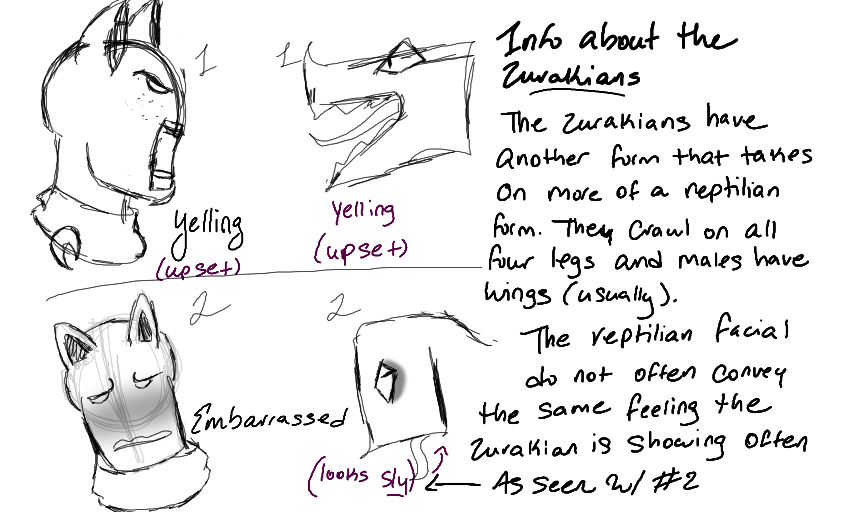 1
1
Yelling
(upset)
Yelling
(upset)
2
2
Embarrassed
(looks sly)
Info about the
Zurakians
The Zurakians have
another form that takes
on more of a reptilian
form. They crawl on all
four legs and males have
wings (usually).
The reptilian facial
do not often convey
the same feeling the
Zurakian is showing often
As seen w/ #2